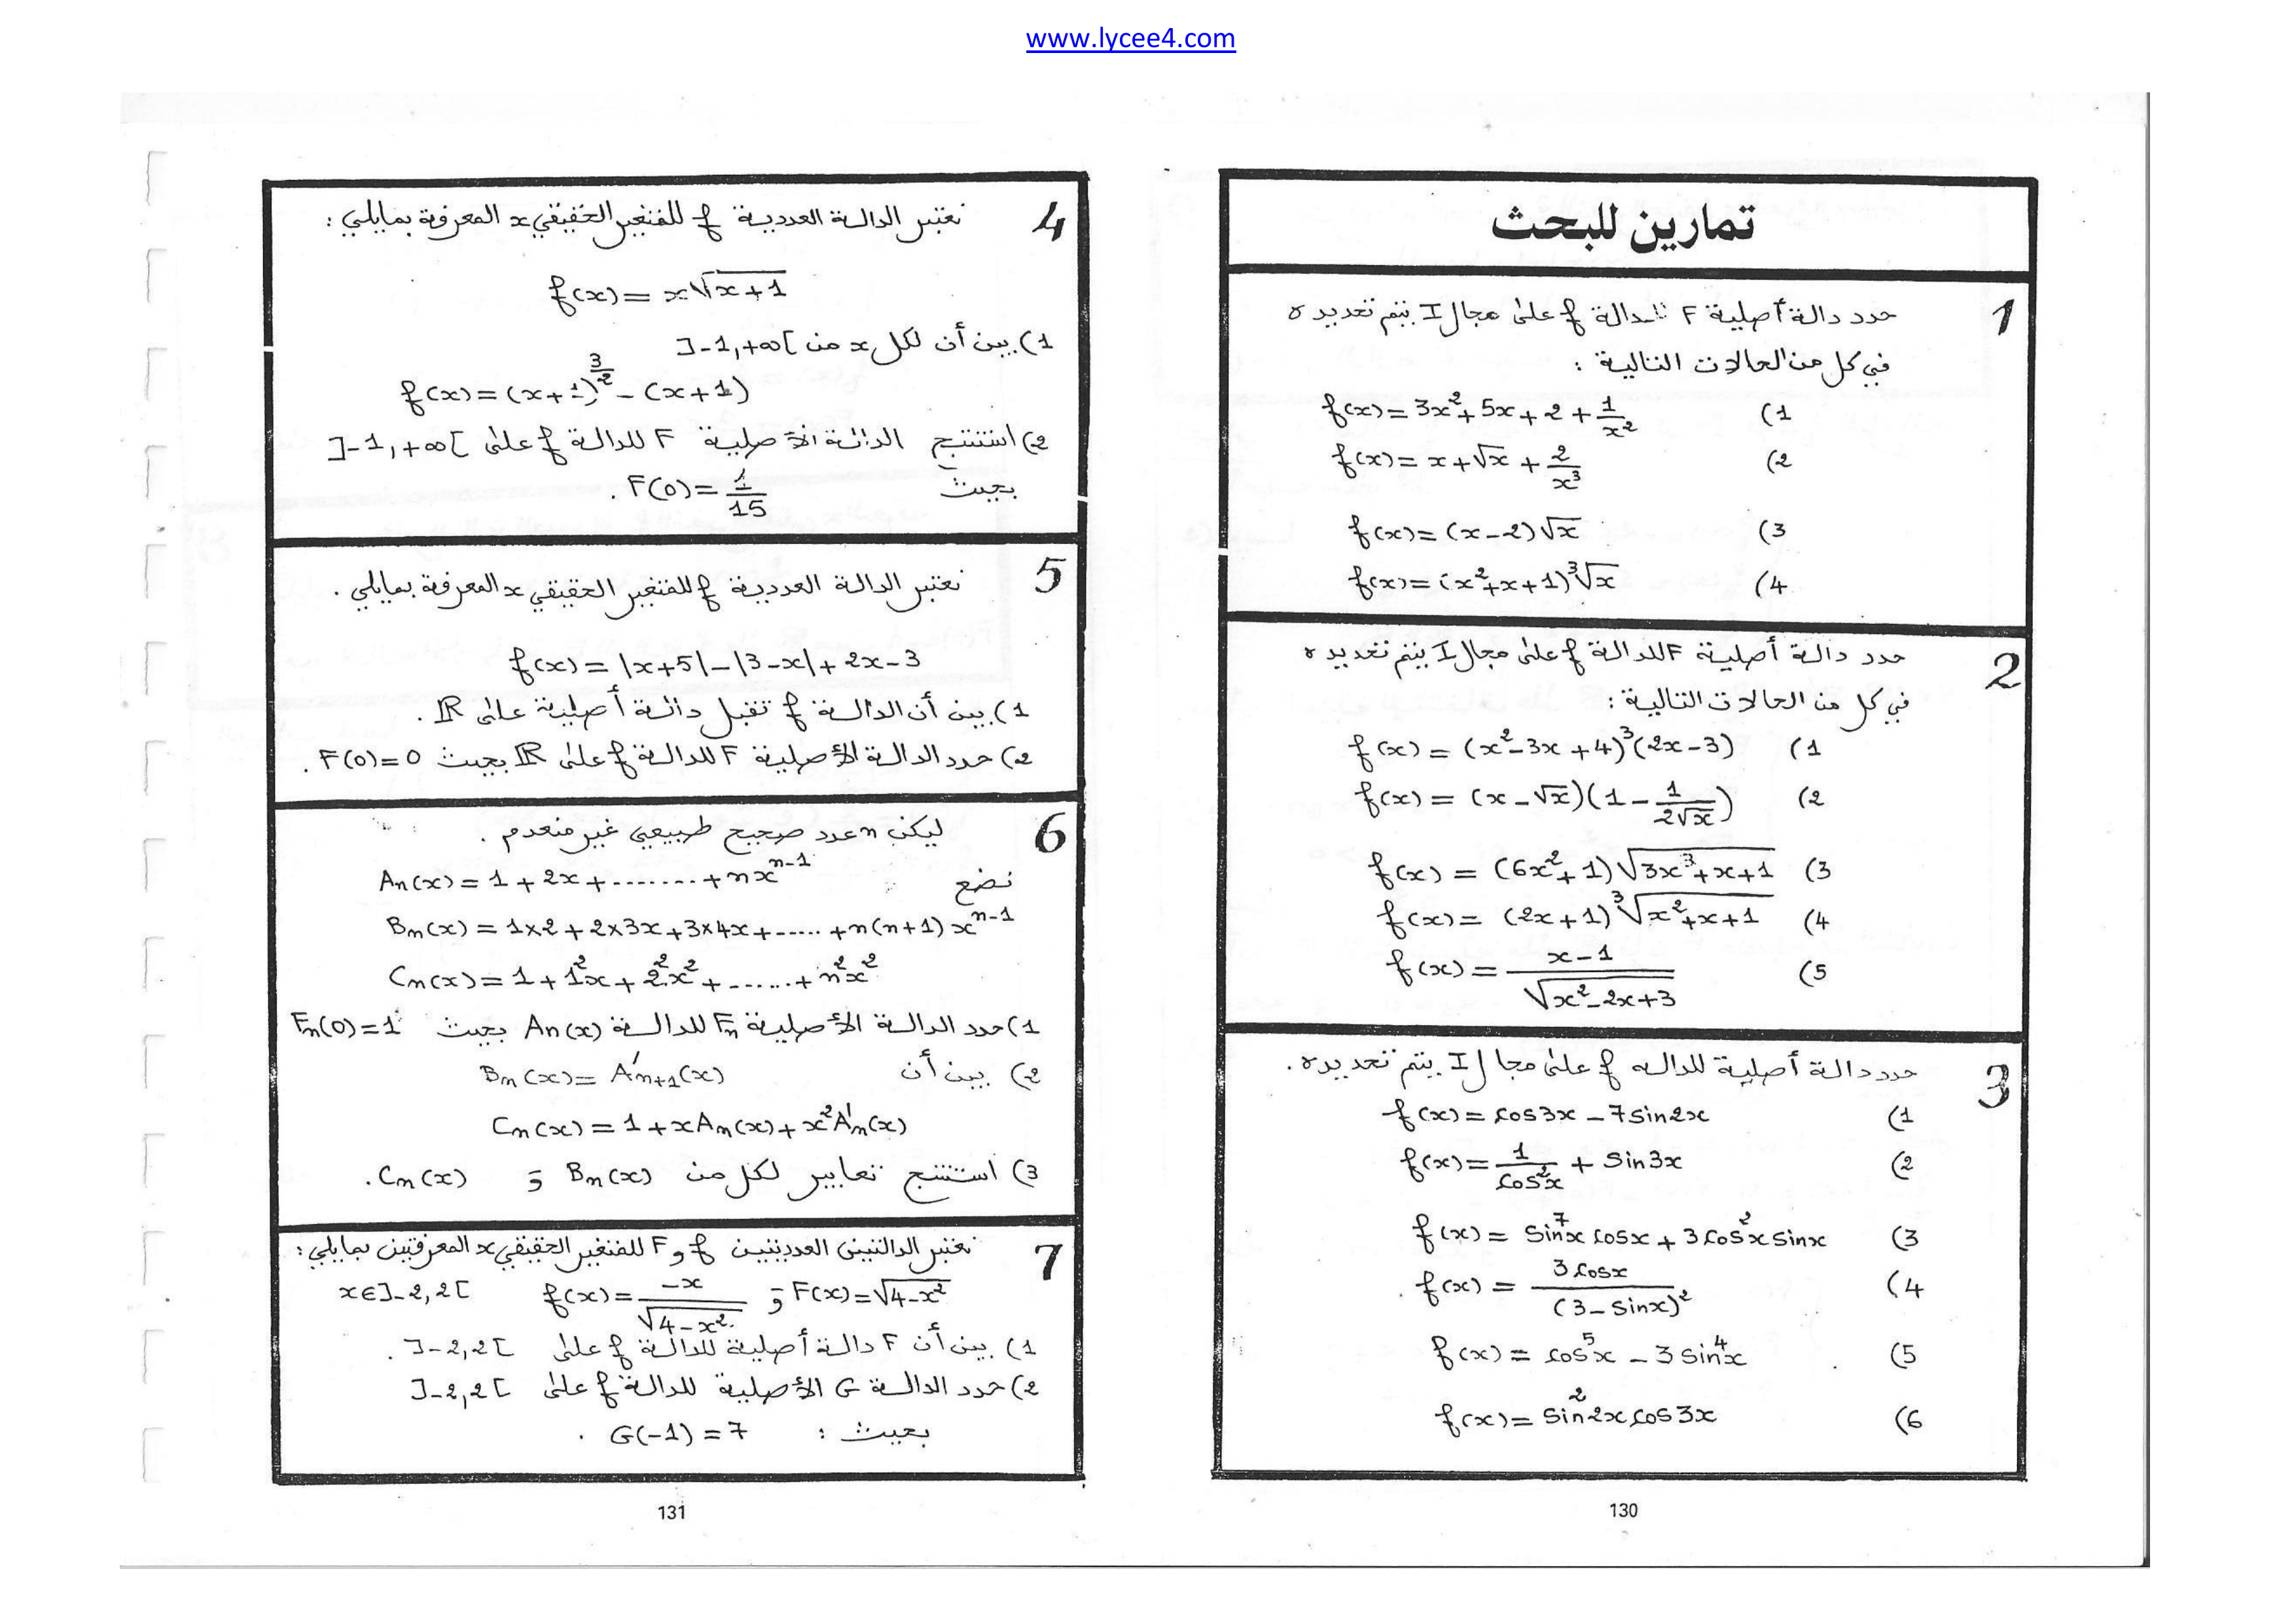 www.lycee4.com
تمارين للبحث
1 حدد دالة أصلية F للدالة f على مجال I يتم تحديده
في كل من الحالات التالية :
1) f(x) = 3x² + 5x + 2 + 1/x²
2) f(x) = x + √x + 2/x³
3) f(x) = (x-2)√x
4) f(x) = (x²+x+1)³√x
2 حدد دالة أصلية F للدالة f على مجال I يتم تحديده
في كل من الحالات التالية :
1) f(x) = (x²-3x+4)³(2x-3)
2) f(x) = (x-√x)(1 - 1/(2√x))
3) f(x) = (6x²+1)√(3x³+x+1)
4) f(x) = (2x+1)³√(x²+x+1)
5) f(x) = (x-1)/√(x²-2x+3)
3 حدد دالة أصلية للدالة f على مجال I يتم تحديده .
1) f(x) = cos3x - 7sin2x
2) f(x) = 1/cos²x + sin3x
3) f(x) = sin⁷x cosx + 3cos²x sinx
4) f(x) = 3cosx/(3-sinx)²
5) f(x) = cos⁵x - 3sin⁴x
6) f(x) = sin²2x cos3x
130
4 نعتبر الدالة العددية f للمتغير الحقيقي x المعرفة بمايلي :
f(x) = x√(x+1)
1) بين أن لكل x من ]-1,+∞[
f(x) = (x+1)^(3/2) - (x+1)
2) استنتج الدالة الأصلية F للدالة f على ]-1,+∞[
بحيث F(0) = 1/15 .
5 نعتبر الدالة العددية f للمتغير الحقيقي x المعرفة بمايلي .
f(x) = |x+5| - |3-x| + 2x - 3
1) بين أن الدالة f تقبل دالة أصلية على ℝ .
2) حدد الدالة الأصلية F للدالة f على ℝ بحيث F(0) = 0 .
6 ليكن n عدد صحيح طبيعي غير منعدم .
نضع An(x) = 1 + 2x + ........ + nx^(n-1)
Bn(x) = 1×2 + 2×3x + 3×4x + ..... + n(n+1)x^(n-1)
Cn(x) = 1 + 1²x + 2²x² + ...... + n²x²
1) حدد الدالة الأصلية Fn للدالة An(x) بحيث Fn(0) = 1
2) بين أن Bn(x) = A'n+1(x)
Cn(x) = 1 + xAn(x) + x²A'n(x)
3) استنتج تعابير لكل من Bn(x) و Cn(x) .
7 نعتبر الدالتين العدديتين f و F للمتغير الحقيقي x المعرفتين بمايلي :
F(x) = √(4-x²) و f(x) = -x/√(4-x²) x∈]-2,2[
1) بين أن F دالة أصلية للدالة f على ]-2,2[ .
2) حدد الدالة G الأصلية للدالة f على ]-2,2[
بحيث : G(-1) = 7 .
131